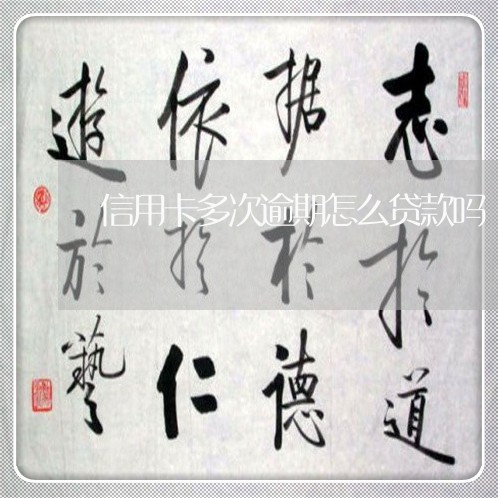 志於道
据於德
依於仁
遊於藝
信用卡多次逾期怎么贷款吗